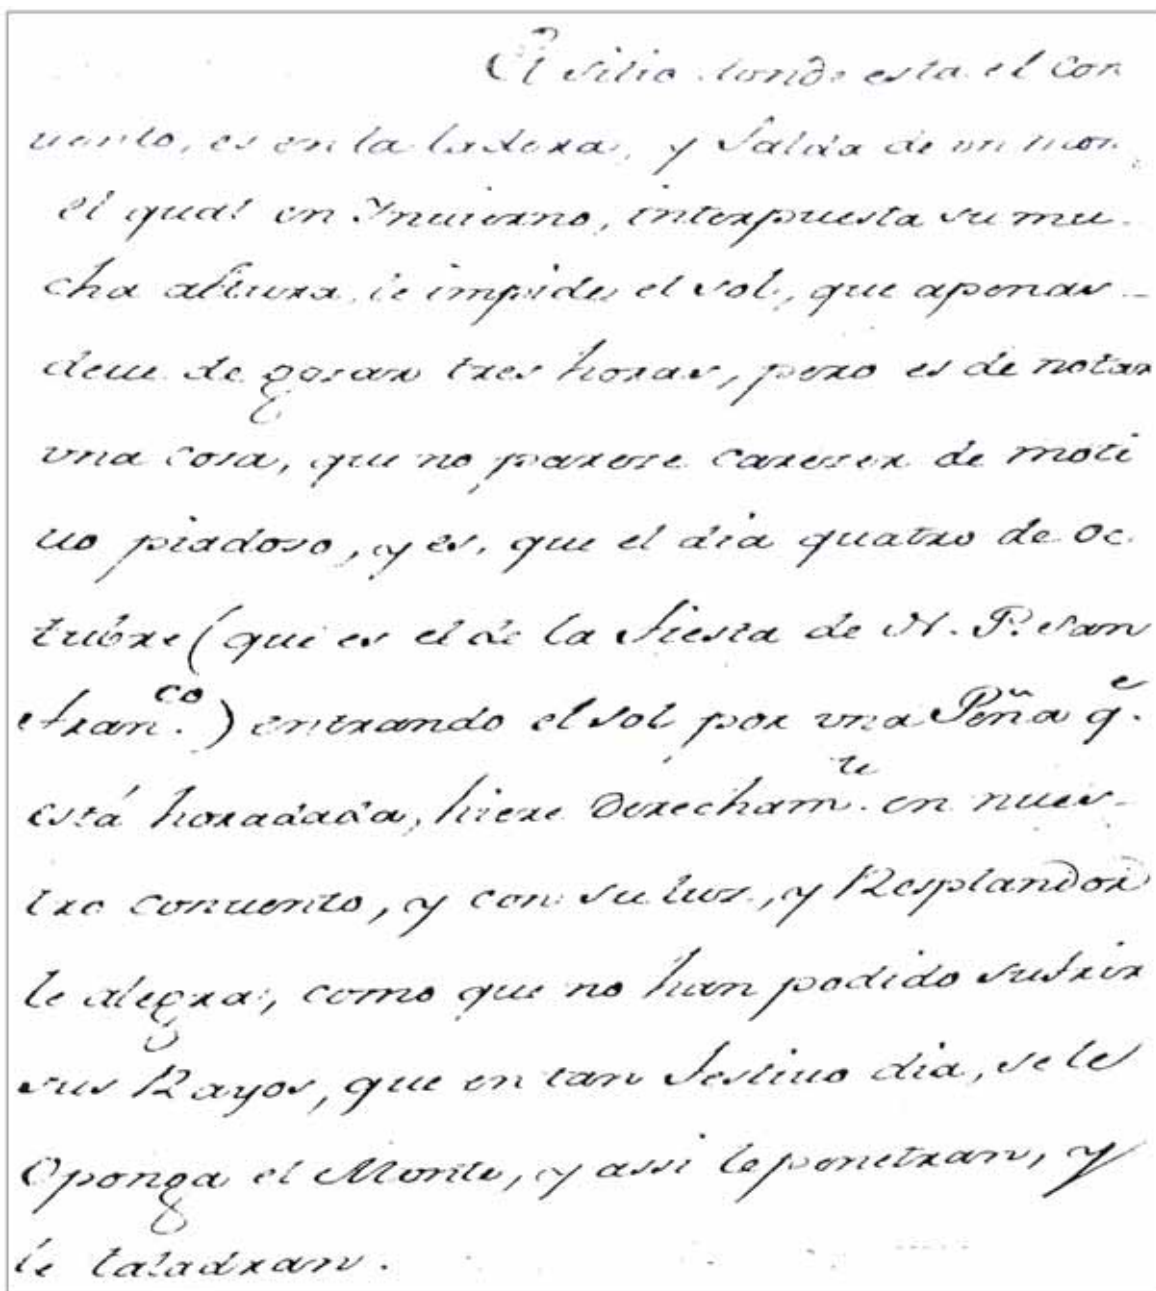 El sitio donde esta el con
uento, es en la ladera, y falda de un mon,
el qual en Ynuierno, interpuesta su mu-
cha altura, le impide el sol, que apenas-
deue de gosar tres horas, pero es de notar
vna cosa, que no parese careser de moti
uo piadoso, y es, que el dia quatro de Oc-
tubre (que es el de la fiesta de N. P. San
Fran.co) entrando el sol por vna Peña q.e
está horadada, hiere Derecham.te en nues-
tro conuento, y con su luz, y Resplandor
le alegra, como que no han podido sufrir
sus Rayos, que en tan festiuo dia, se le
Oponga el Monte, y assi le penetran, y
le taladran.